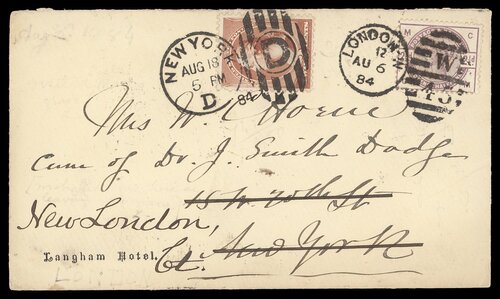 NEW YORK
AUG 18
5 PM
D
84
D
LONDON·W
12
AU 6
84
M C
W
Mrs W.
Care of Dr. J. Smith Dodge
18 W. 20th St
New London,
Ct. New York
Langham Hotel.